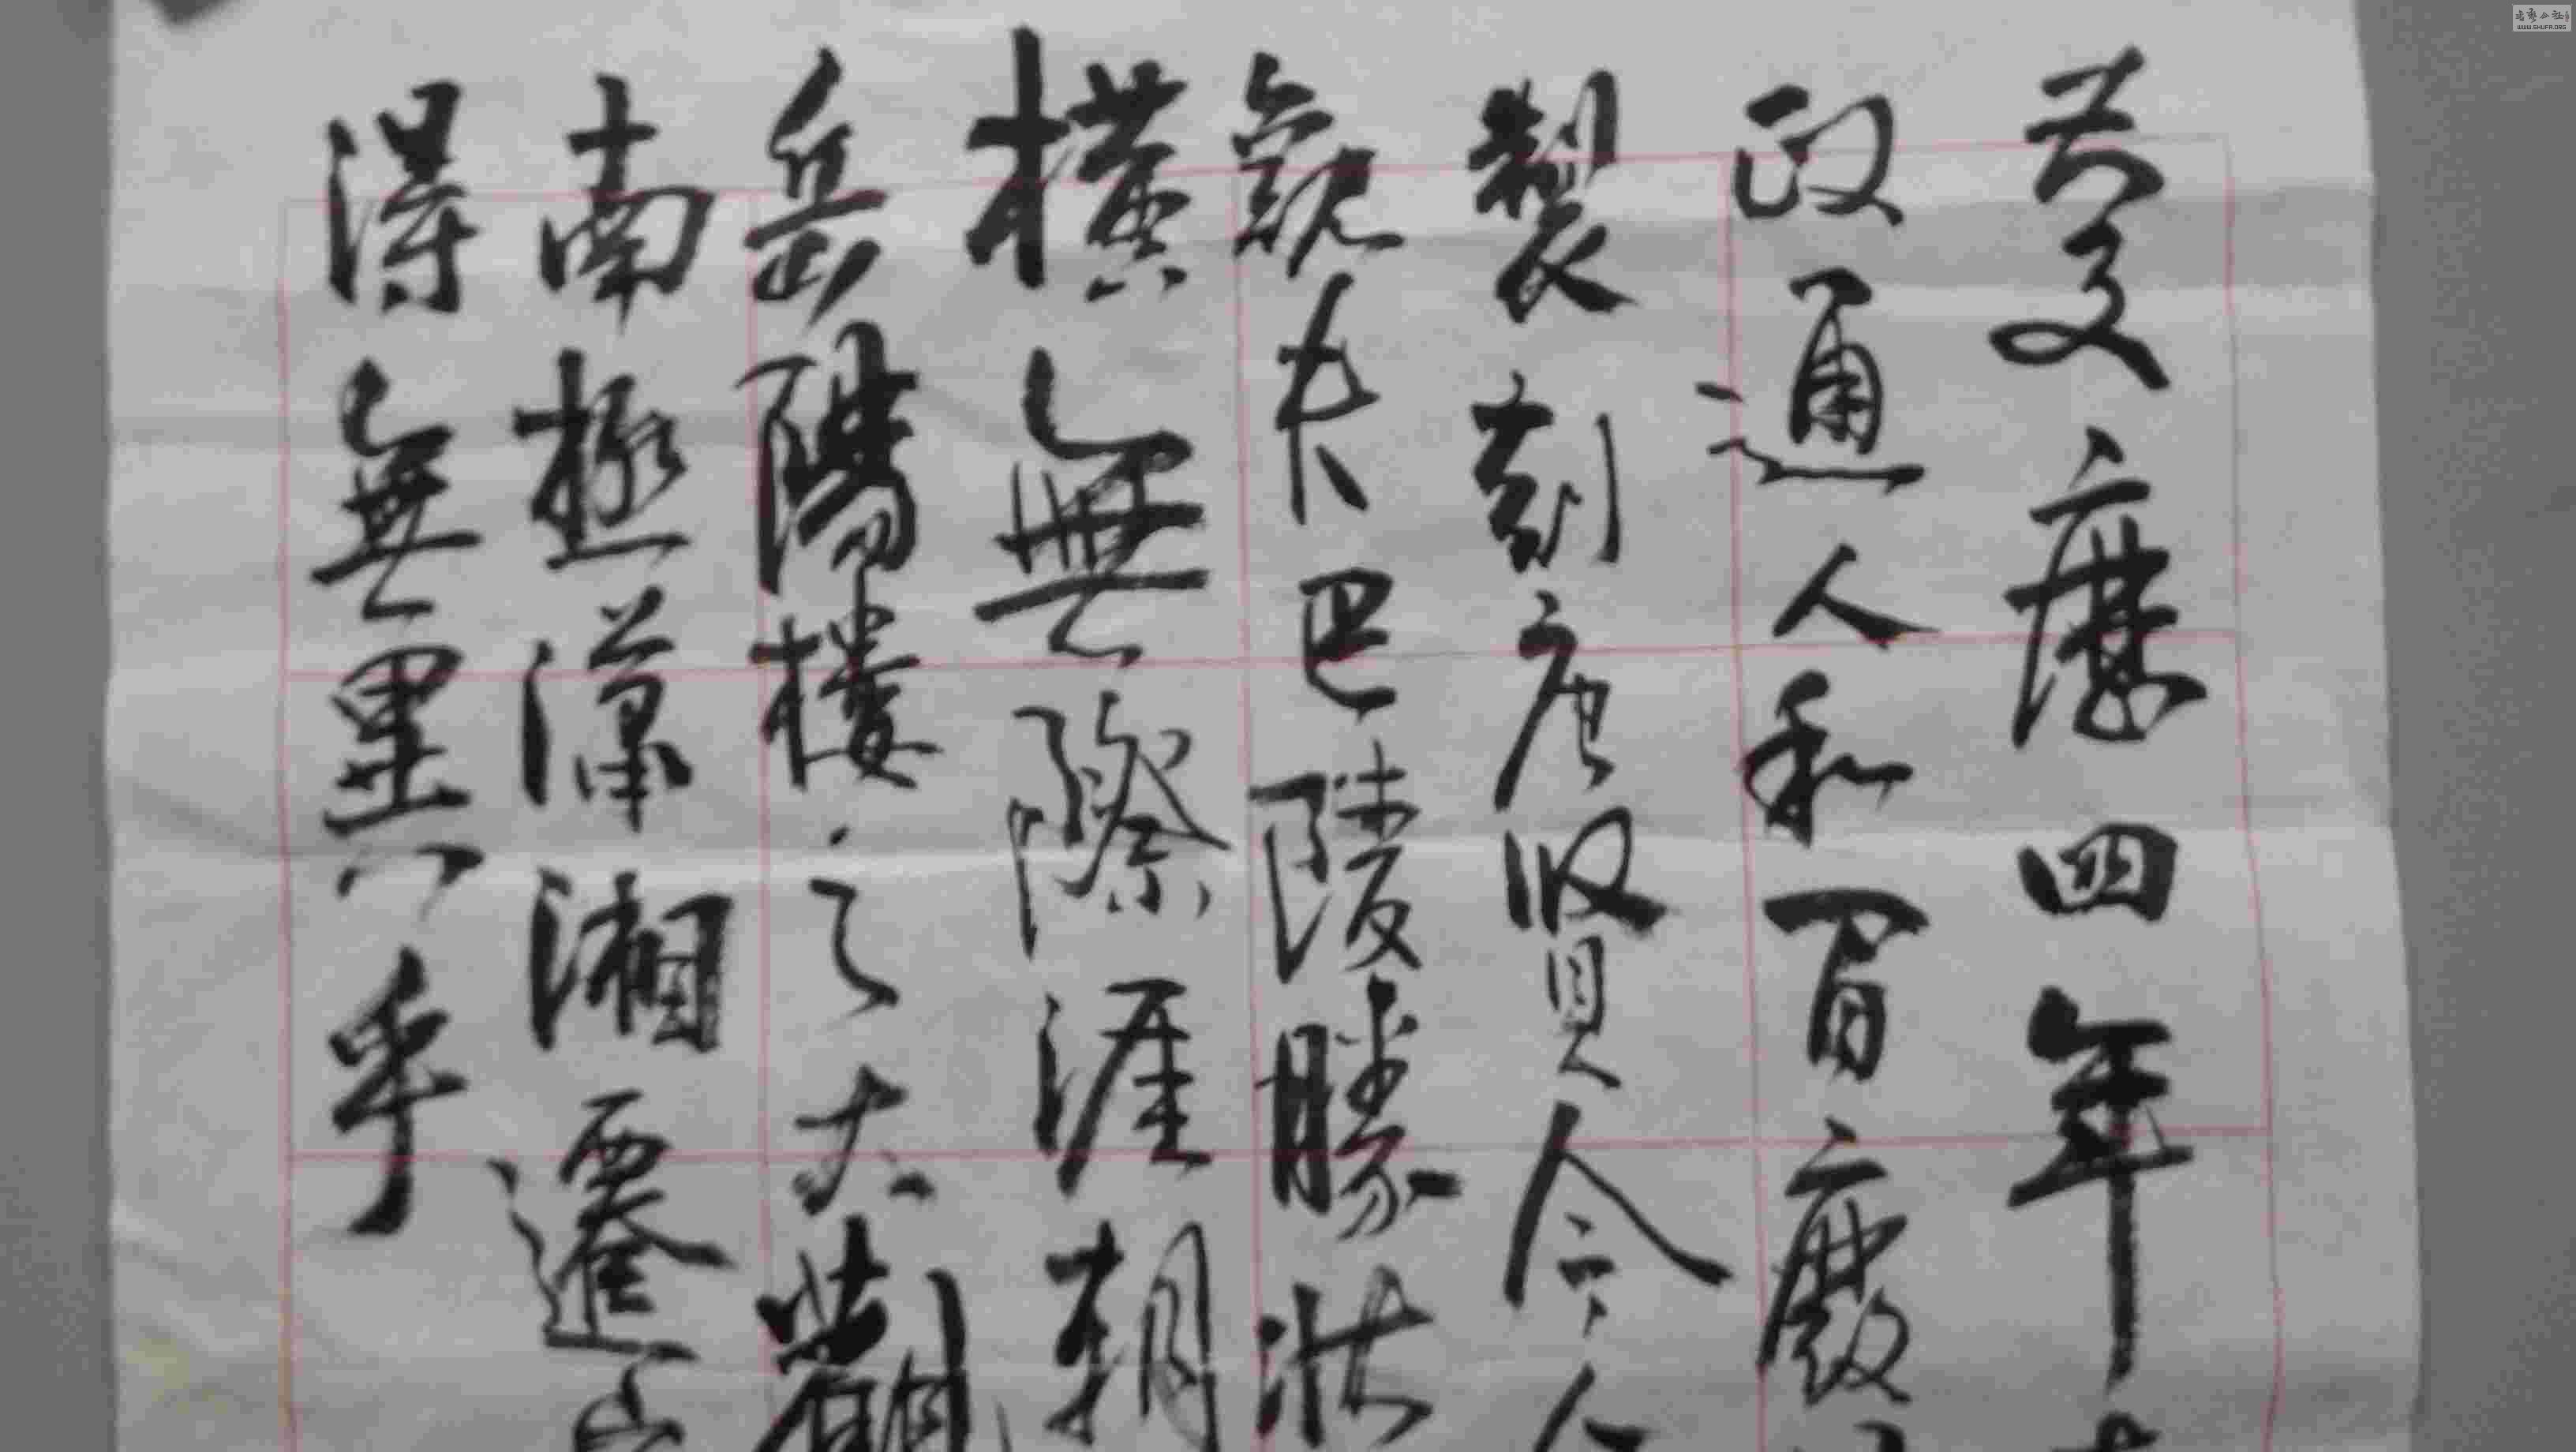 慶曆四年
政通人和百廢
製刻唐賢今人
觀夫巴陵勝狀
橫無際涯朝
岳陽樓之大觀
南極瀟湘遷客
得無異乎
WWW.SHUFA.ORG